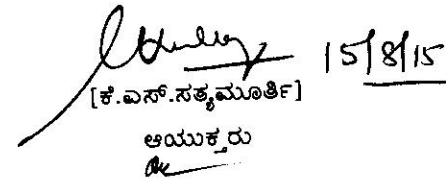 15/8/15
[ಕೆ.ಎಸ್.ಸತ್ಯಮೂರ್ತಿ]
ಆಯುಕ್ತರು